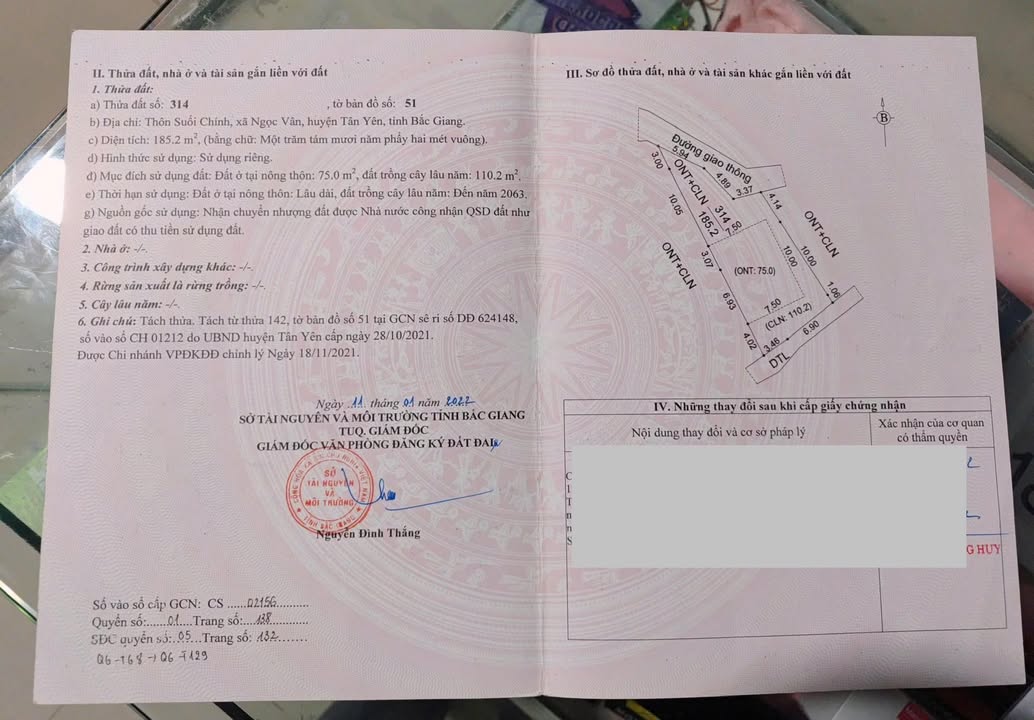 II. Thửa đất, nhà ở và tài sản gắn liền với đất
1. Thửa đất:
a) Thửa đất số: 314 , tờ bản đồ số: 51
b) Địa chỉ: Thôn Suối Chính, xã Ngọc Vân, huyện Tân Yên, tỉnh Bắc Giang.
c) Diện tích: 185.2 m², (bằng chữ: Một trăm tám mươi năm phẩy hai mét vuông).
d) Hình thức sử dụng: Sử dụng riêng.
đ) Mục đích sử dụng đất: Đất ở tại nông thôn: 75.0 m², đất trồng cây lâu năm: 110.2 m².
e) Thời hạn sử dụng: Đất ở tại nông thôn: Lâu dài, đất trồng cây lâu năm: Đến năm 2063.
g) Nguồn gốc sử dụng: Nhận chuyển nhượng đất được Nhà nước công nhận QSD đất như
giao đất có thu tiền sử dụng đất.
2. Nhà ở: -/-.
3. Công trình xây dựng khác: -/-.
4. Rừng sản xuất là rừng trồng: -/-.
5. Cây lâu năm: -/-.
6. Ghi chú: Tách thửa. Tách từ thửa 142, tờ bản đồ số 51 tại GCN sê ri số DĐ 624148,
số vào sổ CH 01212 do UBND huyện Tân Yên cấp ngày 28/10/2021.
Được Chi nhánh VPĐKĐĐ chỉnh lý Ngày 18/11/2021.
Ngày 11 tháng 01 năm 2022
SỞ TÀI NGUYÊN VÀ MÔI TRƯỜNG TỈNH BẮC GIANG
TUQ. GIÁM ĐỐC
GIÁM ĐỐC VĂN PHÒNG ĐĂNG KÝ ĐẤT ĐAI
CỘNG HÒA XÃ HỘI CHỦ NGHĨA VIỆT NAM
SỞ
TÀI NGUYÊN
VÀ
MÔI TRƯỜNG
TỈNH BẮC GIANG
Nguyễn Đình Thắng
Số vào sổ cấp GCN: CS ......02156..........
Quyển số:......01....Trang số:...138...........
SĐC quyển số:..05...Trang số: 132.......
Q6-T68→Q6-T129
III. Sơ đồ thửa đất, nhà ở và tài sản khác gắn liền với đất
B
Đường giao thông
5.94
4.89
3.37
3.00
ONT+CLN
314
185.2
7.50
4.14
ONT+CLN
10.05
10.00
10.00
ONT+CLN
3.07
(ONT: 75.0)
6.93
7.50
1.06
(CLN: 110.2)
4.02
3.46
6.90
DTL
IV. Những thay đổi sau khi cấp giấy chứng nhận
Nội dung thay đổi và cơ sở pháp lý
Xác nhận của cơ quan
có thẩm quyền
G HUY